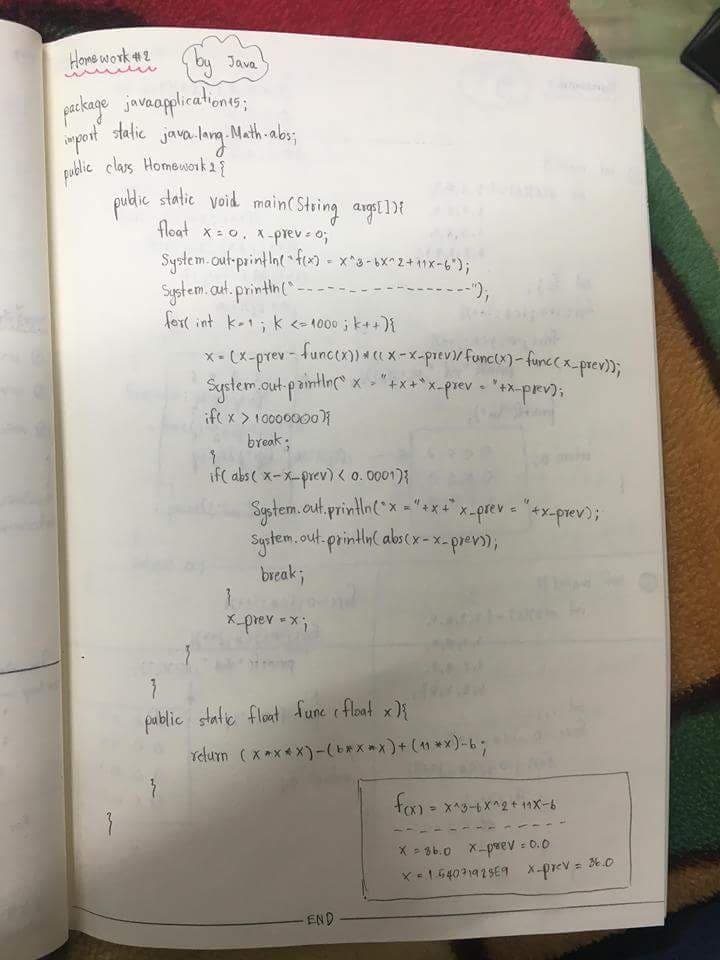 Homework #2
by Java
package javaapplication15;
import static java.lang.Math.abs;
public class Homework2{
public static void main(String args[]){
float x = 0, x_prev=0;
System.out.println("f(x) = x^3-6x^2+11x-6");
System.out.println("-----------------");
for( int k=1 ; k <=1000 ; k++){
x = (x_prev - func(x))*(( x-x_prev)/func(x)-func(x_prev));
System.out.println(" x = "+x+" x_prev = "+x_prev);
if( x > 10000000){
break;
}
if( abs( x-x_prev) < 0.0001){
System.out.println("x = "+x+" x_prev = "+x_prev);
System.out.println( abs(x-x_prev));
break;
}
x_prev = x;
}
}
public static float func (float x){
return (x*x*x)-(6*x*x)+(11*x)-6;
}
}
f(x) = x^3-6x^2+11x-6
-------------
x = 36.0 x_prev = 0.0
x = 1.54071923E9 x_prev = 36.0
END